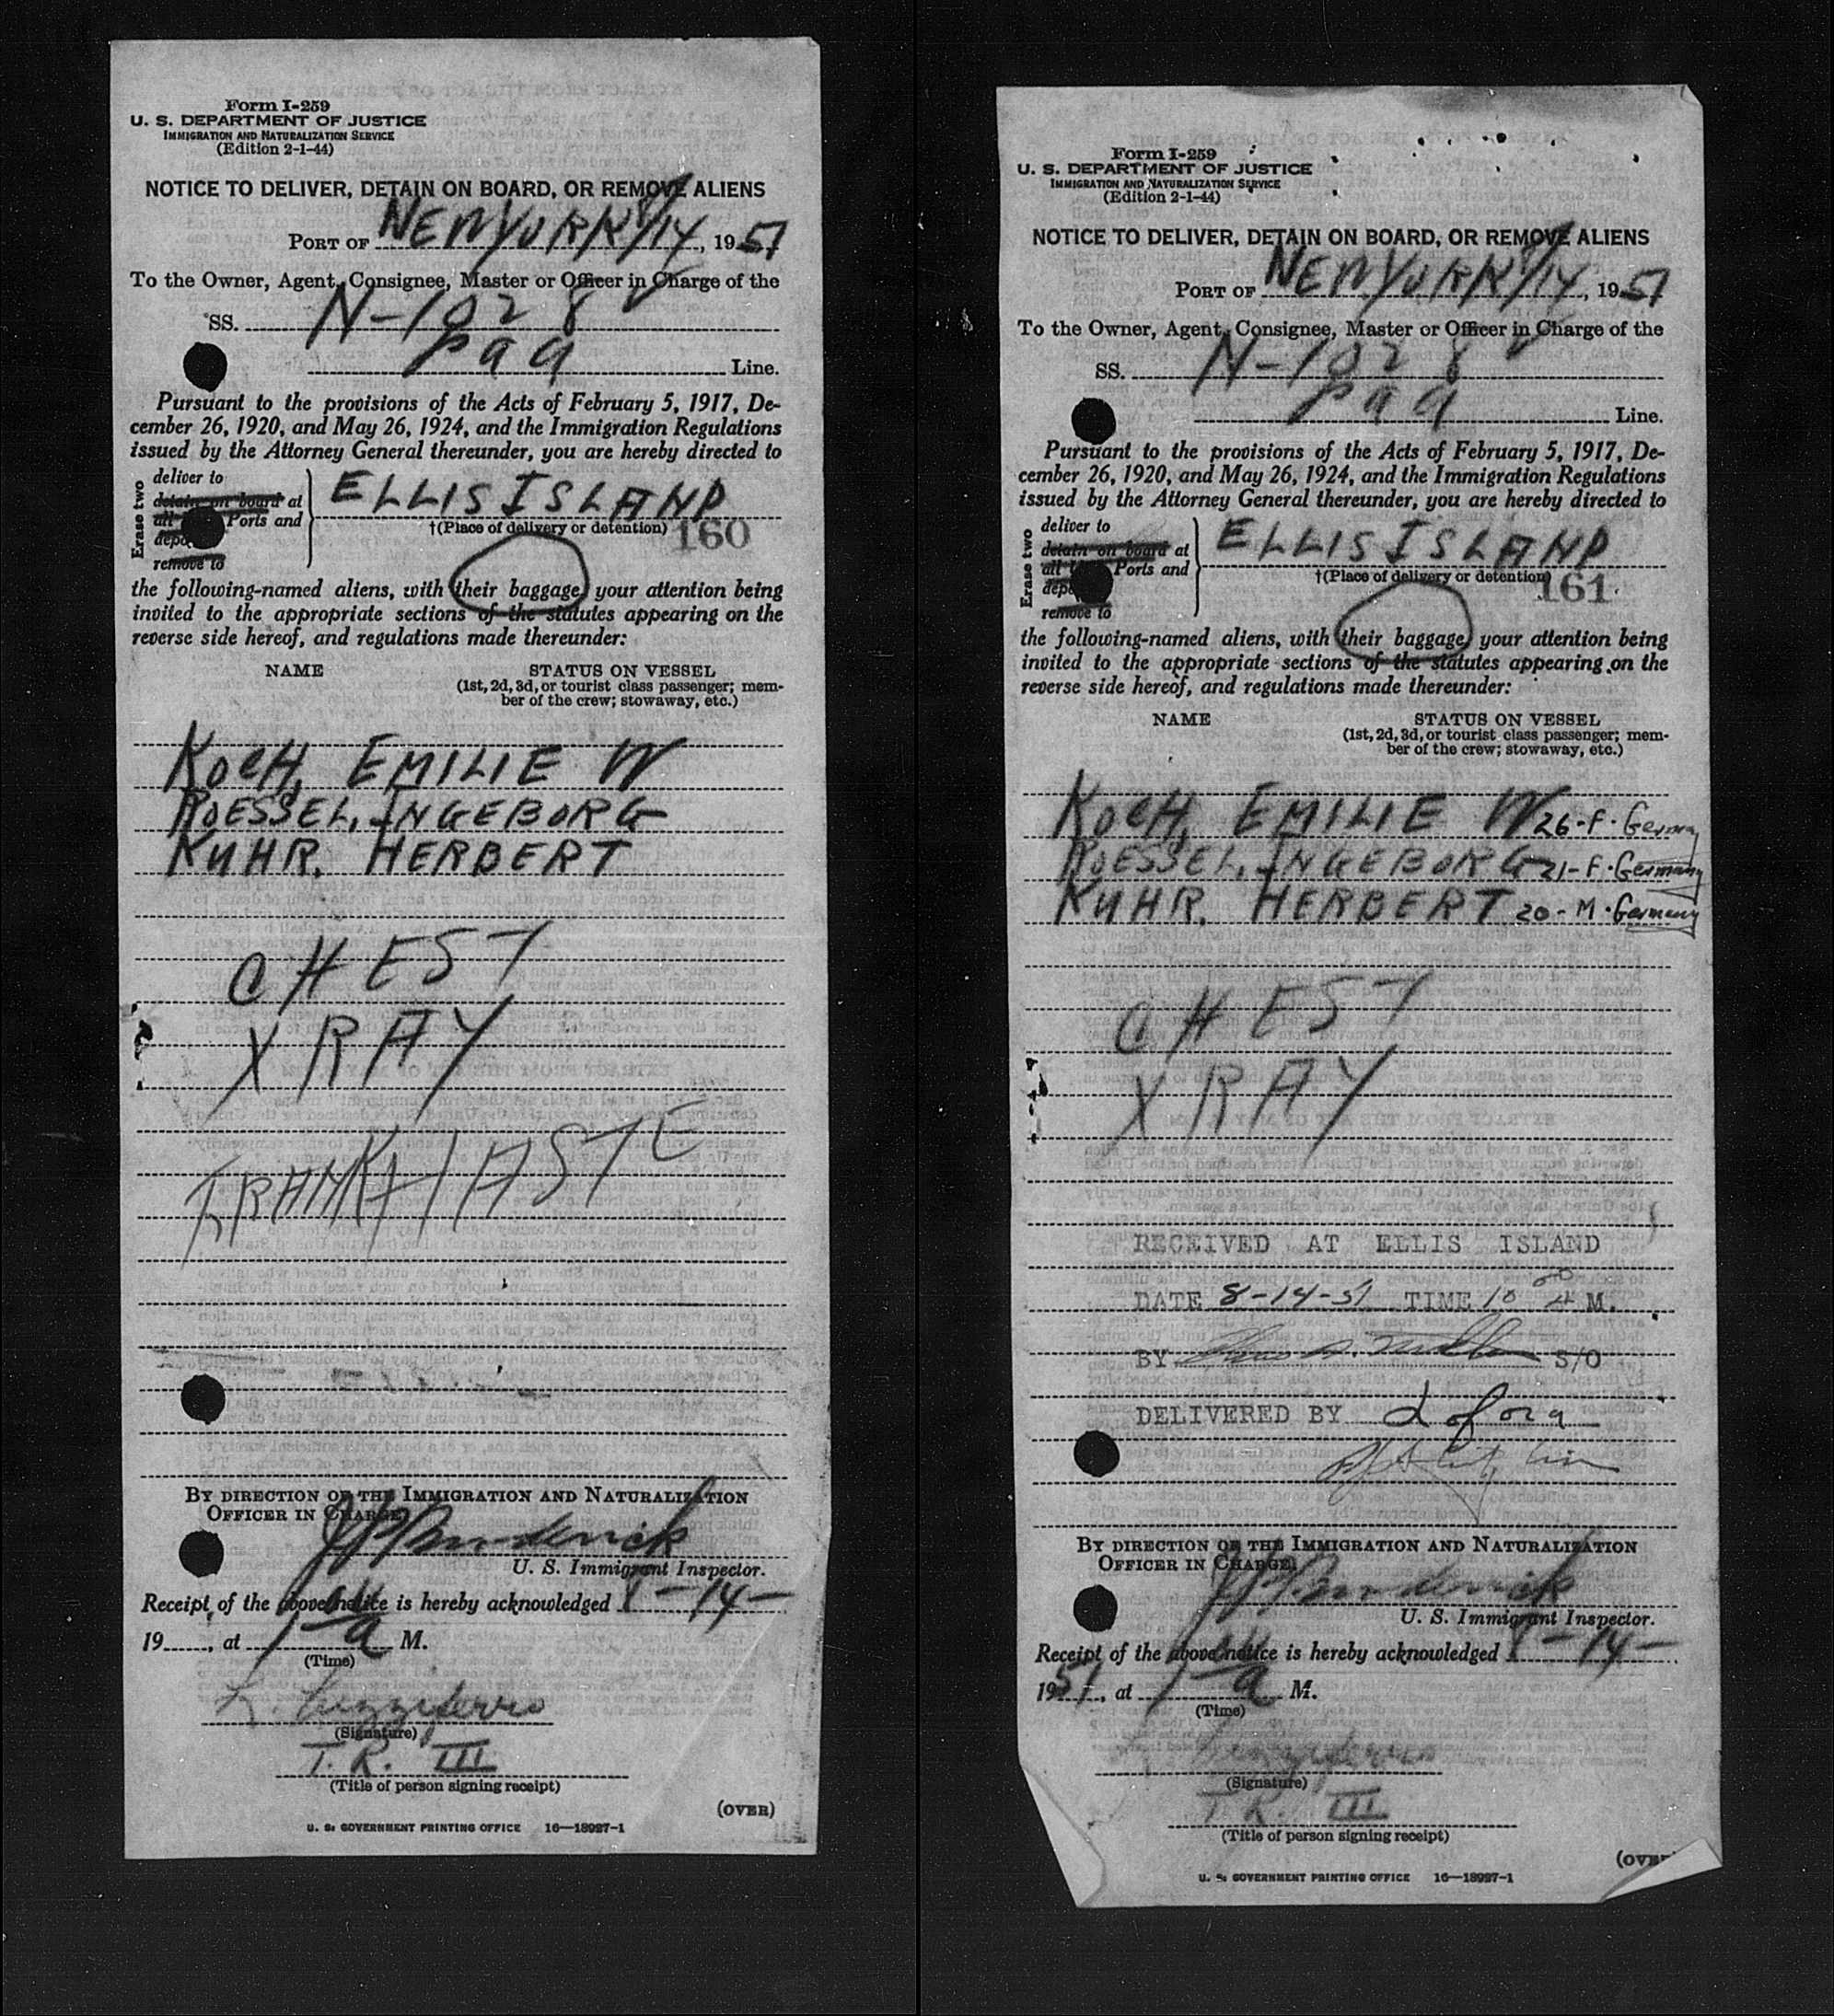 Form I-259
U. S. DEPARTMENT OF JUSTICE
IMMIGRATION AND NATURALIZATION SERVICE
(Edition 2-1-44)
NOTICE TO DELIVER, DETAIN ON BOARD, OR REMOVE ALIENS
PORT OF NEW YORK 8/14, 1951
To the Owner, Agent, Consignee, Master or Officer in Charge of the
SS. N-1028 V
PAA Line.
Pursuant to the provisions of the Acts of February 5, 1917, De-
cember 26, 1920, and May 26, 1924, and the Immigration Regulations
issued by the Attorney General thereunder, you are hereby directed to
Erase two
deliver to
detain on board at
all Ports and
remove to
ELLIS ISLAND
†(Place of delivery or detention)
160
the following-named aliens, with their baggage, your attention being
invited to the appropriate sections of the statutes appearing on the
reverse side hereof, and regulations made thereunder:
NAME STATUS ON VESSEL
(1st, 2d, 3d, or tourist class passenger; mem-
ber of the crew; stowaway, etc.)
KOCH, EMILIE W
ROESSEL, INGEBORG
KUHR, HERBERT
CHEST
X RAY
BY DIRECTION OF THE IMMIGRATION AND NATURALIZATION
OFFICER IN CHARGE:
U. S. Immigrant Inspector.
Receipt of the above notice is hereby acknowledged 8-14-
19, at 1- a M.
(Time)
(Signature)
T. R. III
(Title of person signing receipt)
(OVER)
U. S. GOVERNMENT PRINTING OFFICE 16—18927-1
Form I-259
U. S. DEPARTMENT OF JUSTICE
IMMIGRATION AND NATURALIZATION SERVICE
(Edition 2-1-44)
NOTICE TO DELIVER, DETAIN ON BOARD, OR REMOVE ALIENS
PORT OF NEW YORK 8/14, 1951
To the Owner, Agent, Consignee, Master or Officer in Charge of the
SS. N-1028 V
PAA Line.
Pursuant to the provisions of the Acts of February 5, 1917, De-
cember 26, 1920, and May 26, 1924, and the Immigration Regulations
issued by the Attorney General thereunder, you are hereby directed to
Erase two
deliver to
detain on board at
all Ports and
remove to
ELLIS ISLAND
†(Place of delivery or detention)
161
the following-named aliens, with their baggage, your attention being
invited to the appropriate sections of the statutes appearing on the
reverse side hereof, and regulations made thereunder:
NAME STATUS ON VESSEL
(1st, 2d, 3d, or tourist class passenger; mem-
ber of the crew; stowaway, etc.)
KOCH, EMILIE W 26-F-Germany
ROESSEL, INGEBORG 21-F-Germany
KUHR, HERBERT 20-M-Germany
CHEST
X RAY
RECEIVED AT ELLIS ISLAND
DATE 8-14-51 TIME 10 00 A M.
BY S/O
DELIVERED BY
BY DIRECTION OF THE IMMIGRATION AND NATURALIZATION
OFFICER IN CHARGE:
U. S. Immigrant Inspector.
Receipt of the above notice is hereby acknowledged 8-14-
1951, at 1- a M.
(Time)
(Signature)
T. R. III
(Title of person signing receipt)
(OVER
U. S. GOVERNMENT PRINTING OFFICE 16—18927-1